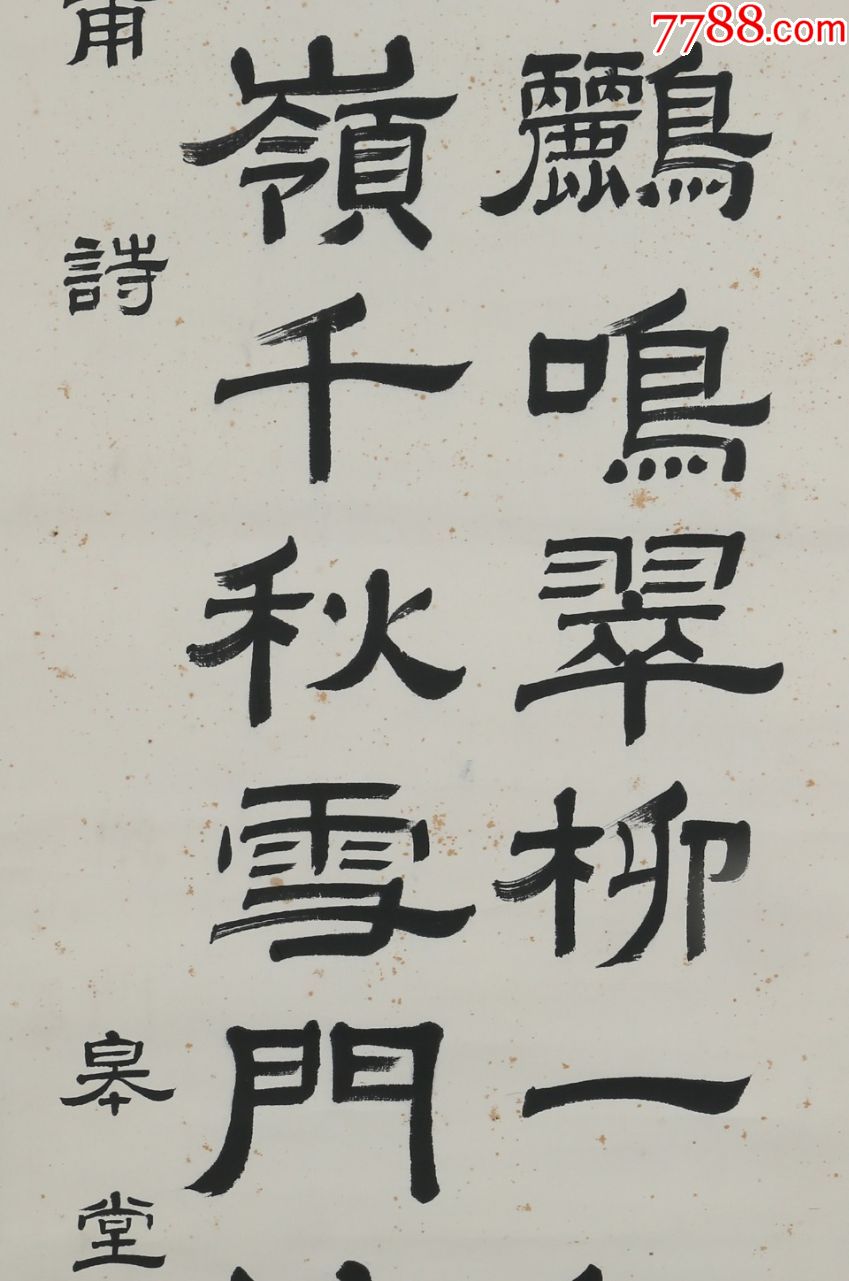 7788.com
鸝鳴翠柳一
嶺千秋雪門
甫詩 皋堂